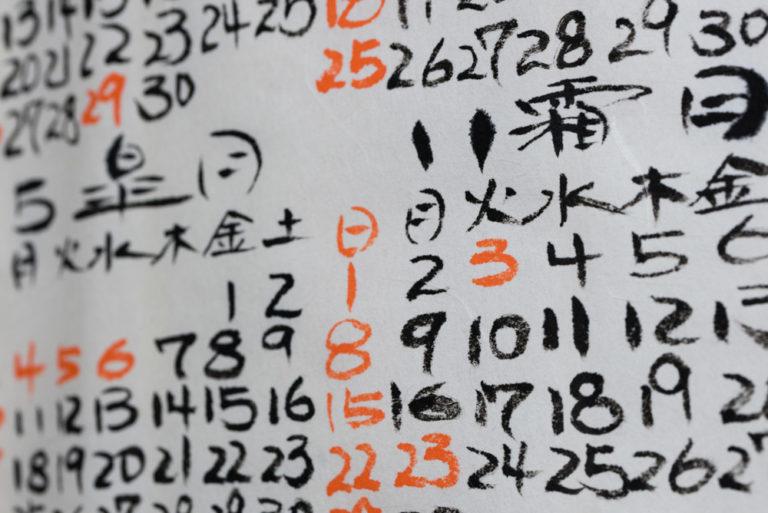 13 14 15
20 21 22 23 24 25
27 28 29 30
5 皐月
月 火 水 木 金 土
1 2
4 5 6 7 8 9
11 12 13 14 15 16
18 19 20 21 22 23
27 28 29 30
18
25 26 27 28 29 30
11 霜月
日 月 火 水 木 金
1 2 3 4 5 6
8 9 10 11 12 13
15 16 17 18 19
22 23 24 25 26 27
29 30